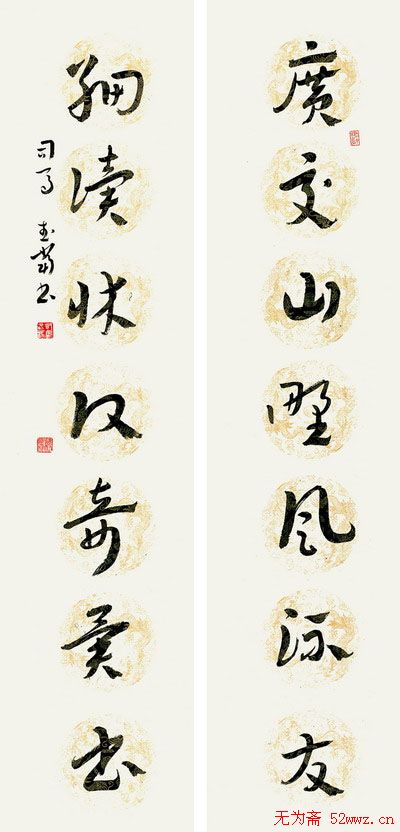 廣交山野風流友
細讀牀頭奇異書
司馬武當書
无为斋 52wwz.cn